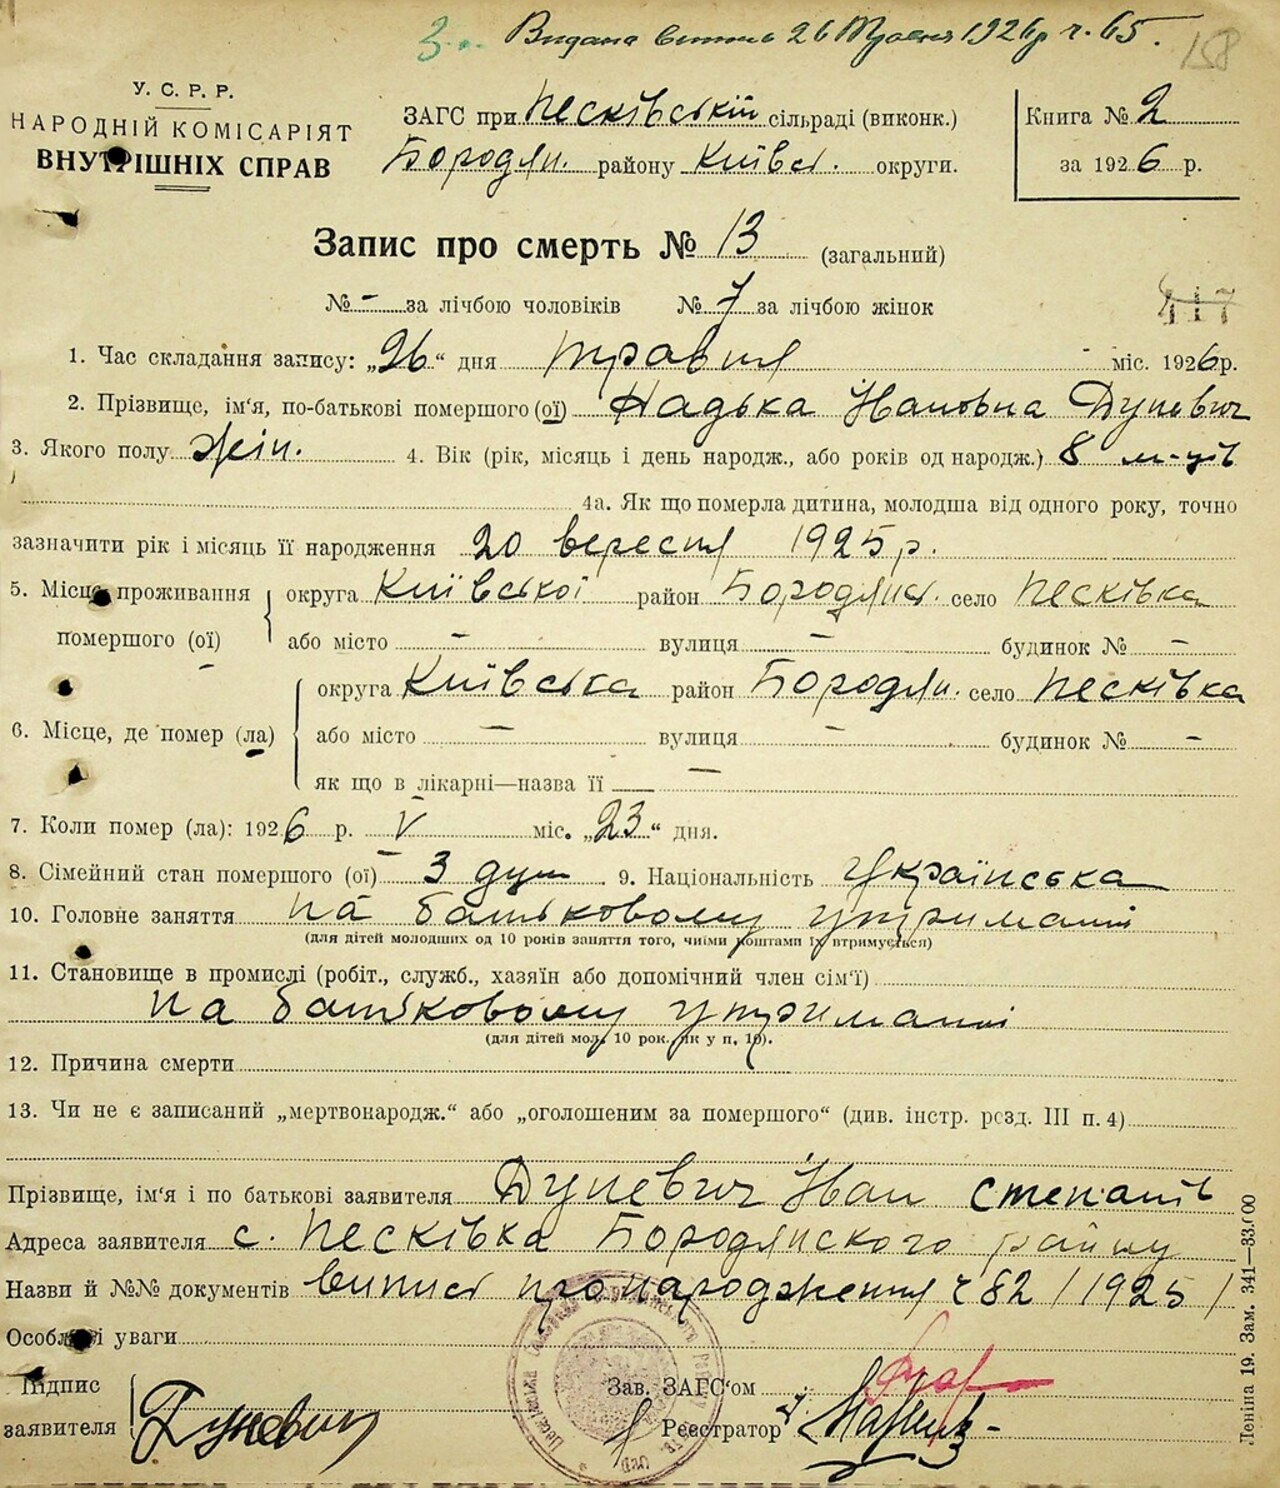 Видана витпсь 26 Травня 1926р ч. 65.
158
У. С. Р. Р.
НАРОДНІЙ КОМІСАРІЯТ
ВНУТРІШНІХ СПРАВ
ЗАГС при Песківській сільраді (виконк.)
Бородян. району Київсь. округи.
Книга № 2
за 1926 р.
Запис про смерть № 13 (загальний)
№ - за лічбою чоловіків № 7 за лічбою жінок
417
1. Час складання запису: „26“ дня травня міс. 1926р.
2. Прізвище, ім'я, по-батькові помершого (ої) Надька Івановна Дуневич
3. Якого полу жін. 4. Вік (рік, місяць і день народж., або років од народж.) 8 м-ців
4а. Як що померла дитина, молодша від одного року, точно
зазначити рік і місяць її народження 20 вересня 1925 р.
5. Місце проживання помершого (ої)
округа Київської район Бородянсь. село Песківка
або місто - вулиця - будинок № -
6. Місце, де помер (ла)
округа Київська район Бородян. село Песківка
або місто - вулиця - будинок № -
як що в лікарні—назва її —
7. Коли помер (ла): 1926 р. V міс. „23“ дня.
8. Сімейний стан помершого (ої) 3 душ 9. Національність Українська
10. Головне заняття на батьковому утриманні
(для дітей молодших од 10 років заняття того, чиїми коштами їх втримується)
11. Становище в промислі (робіт., служб., хазяїн або допомічний член сім'ї)
на батьковому утриманні
(для дітей мол. 10 рок. як у п. 10).
12. Причина смерти
13. Чи не є записаний „мертвонародж.“ або „оголошеним за помершого“ (див. інстр. розд. III п. 4)
Прізвище, ім'я і по батькові заявителя Дуневич Іван Степанів
Адреса заявителя с. Песківка Бородянского району
Назви й №№ документів випись про народження ч 82 /1925/
Особливі уваги
Підпис заявителя Дуневич
Зав. ЗАГС'ом
Реєстратор
Леніна 19. Зам. 341—33.000